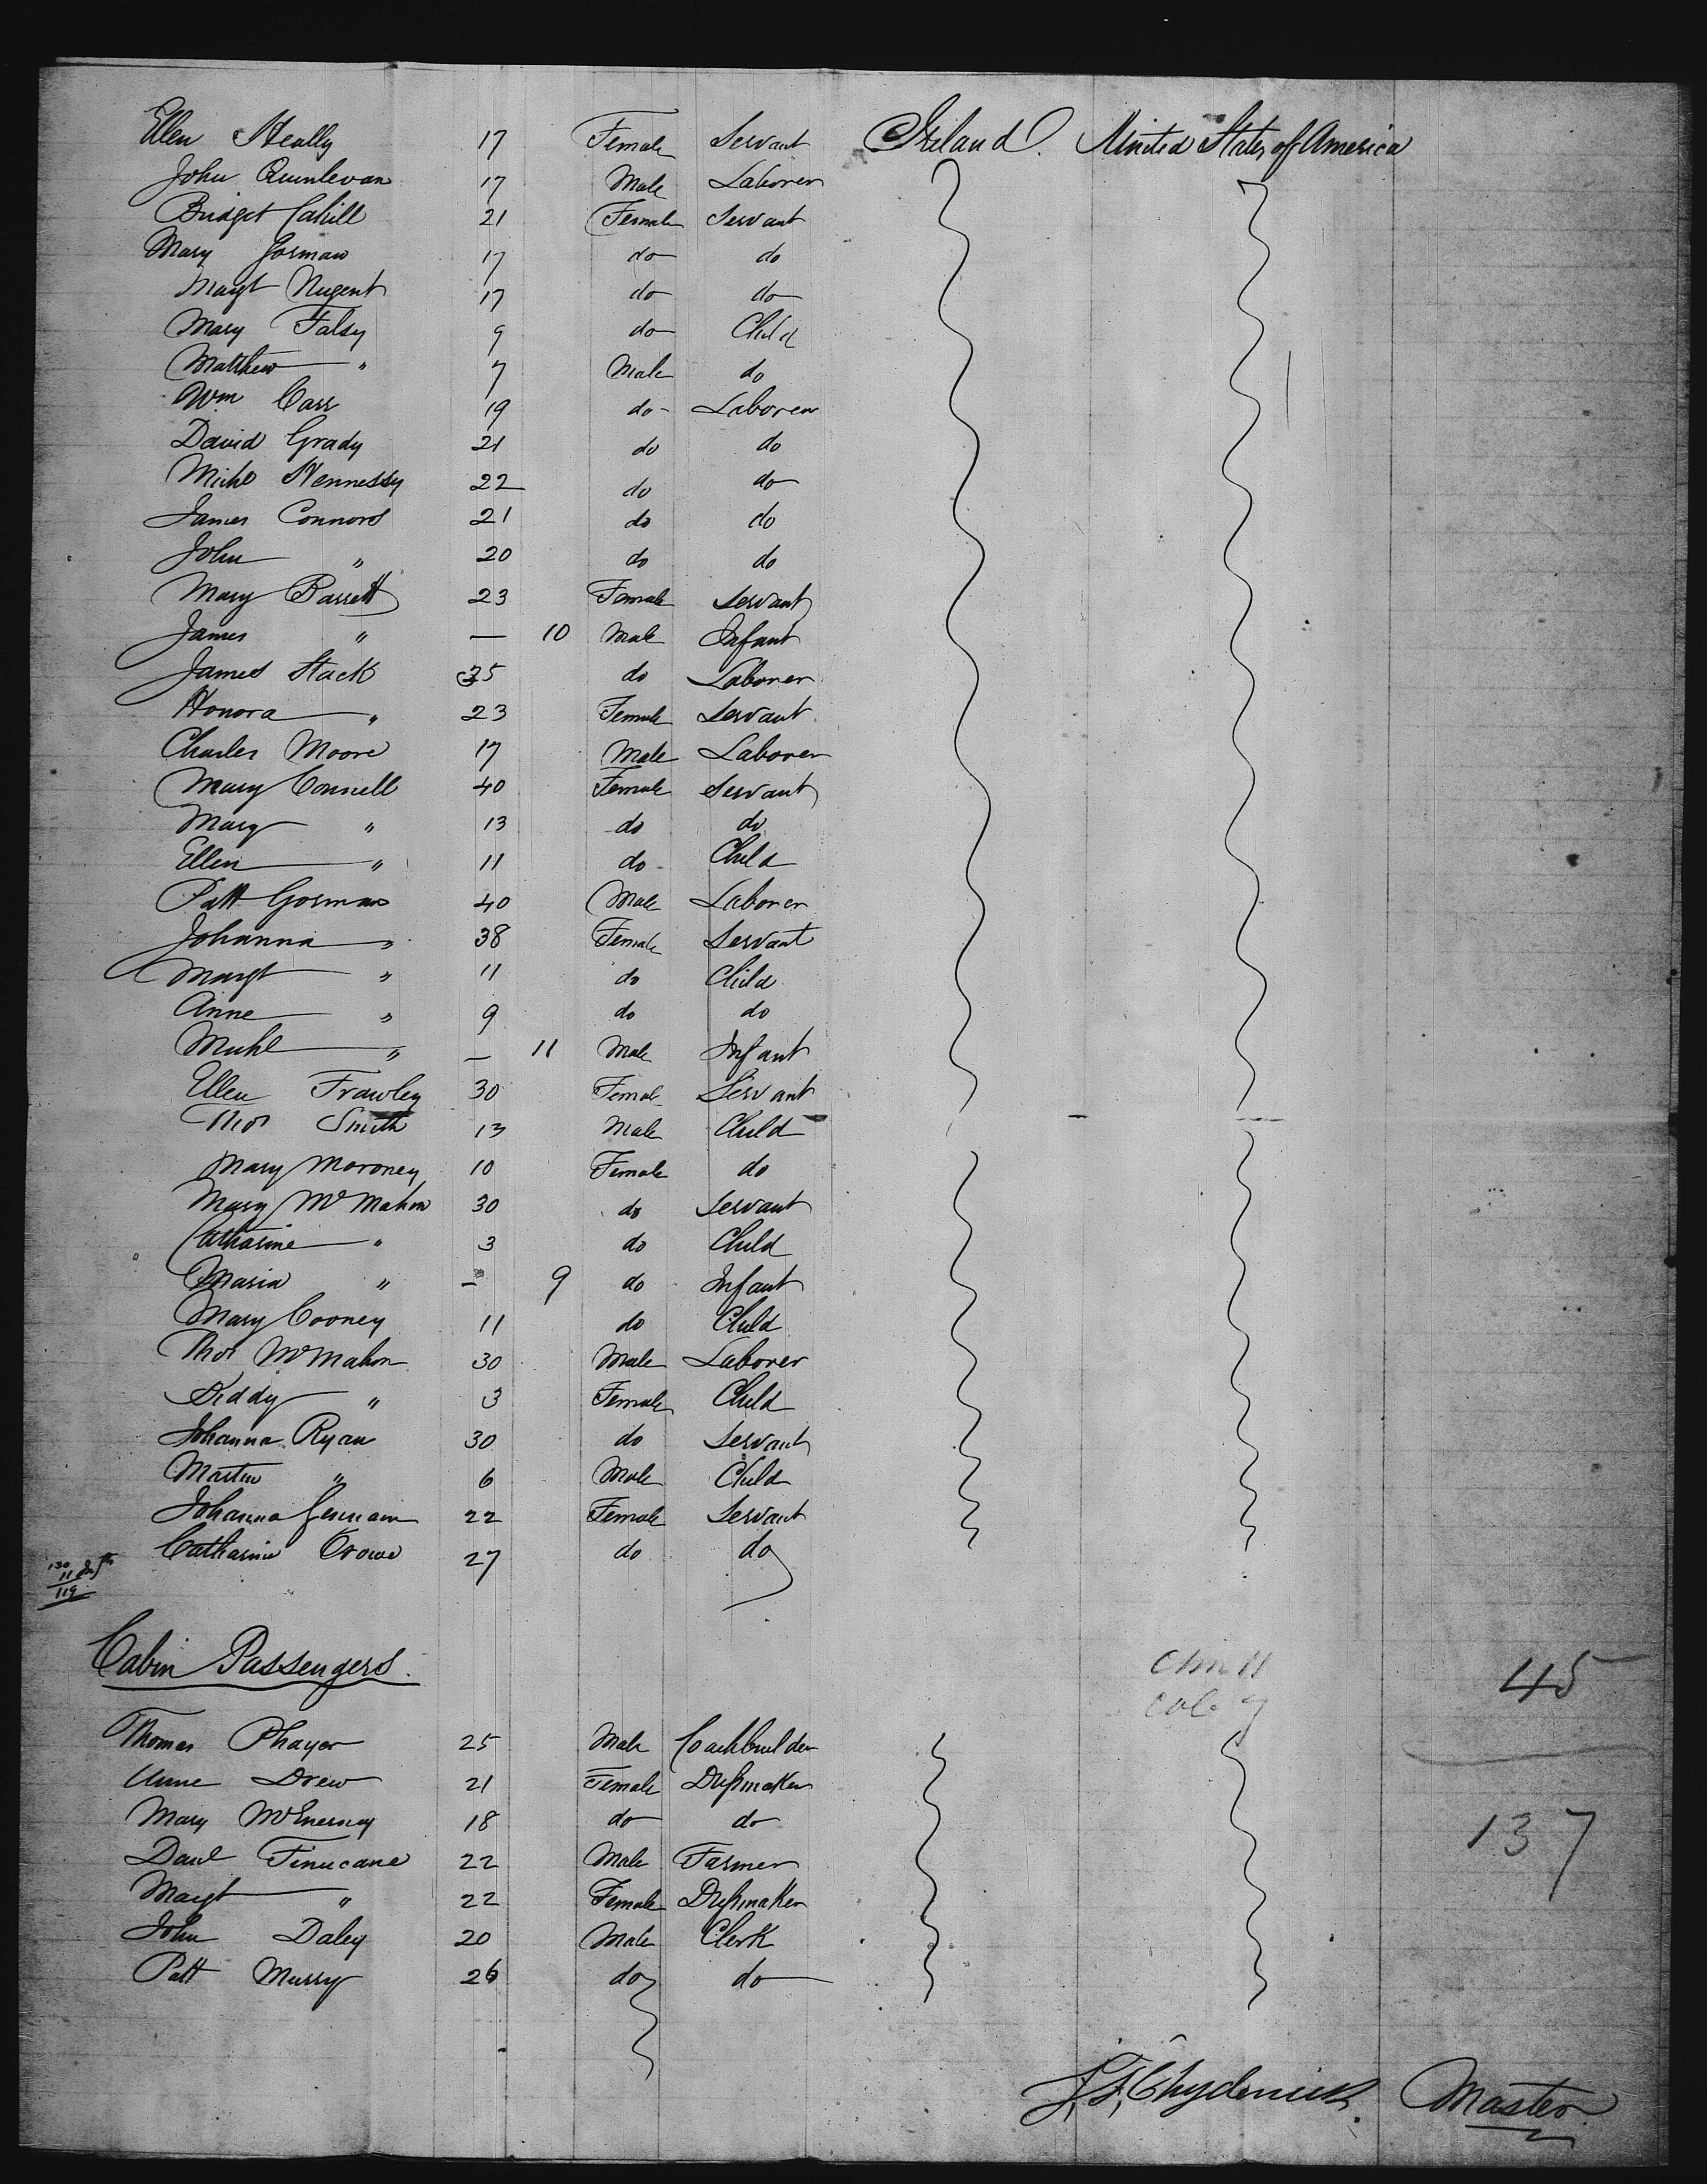 Ellen Heally 17 Female Servant Ireland. United States of America
John Quinlevan 17 Male Laborer
Bridget Cahill 21 Female Servant
Mary Gorman 17 do do
Margt Nugent 17 do do
Mary Falsy 9 do Child
Matthew " 7 Male do
Wm Carr 19 do Laborer
David Grady 21 do do
Michl Hennessy 22 do do
James Connors 21 do do
John " 20 do do
Mary Barrett 23 Female Servant
James " — 10 Male Infant
James Stack 35 do Laborer
Honora " 23 Female Servant
Charles Moore 17 Male Laborer
Mary Connell 40 Female Servant
Mary " 13 do do
Ellen " 11 do Child
Patt Gorman 40 Male Laborer
Johanna " 38 Female Servant
Margt " 11 do Child
Anne " 9 do do
Michl " — 11 Male Infant
Ellen Frawley 30 Female Servant
Thos Smith 13 Male Child
Mary Moroney 10 Female do
Mary McMahon 30 do Servant
Catharine " 3 do Child
Maria " — 9 do Infant
Mary Cooney 11 do Child
Thos McMahon 30 Male Laborer
Biddy " 3 Female Child
Johanna Ryan 30 do Servant
Martin " 6 Male Child
Johanna 22 Female Servant
Catharine Crowe 27 do do
130
11 Inf
119
Cabin Passengers. 45
Thomas Phayer 25 Male Coachbuilder
Anne Drew 21 Female Dressmaker
Mary McInerney 18 do do 137
Danl Finucane 22 Male Farmer
Margt " 22 Female Dressmaker
John Daley 20 Male Clerk
Patt Murry 26 do do
Master